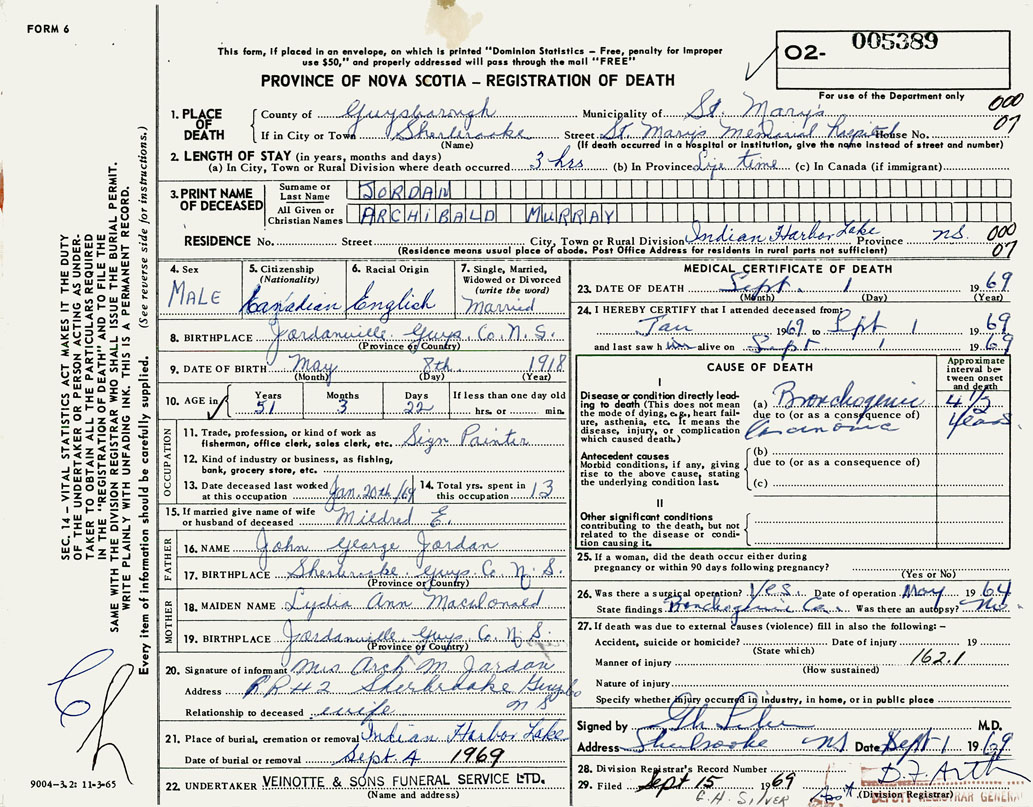 FORM 6
This form, if placed in an envelope, on which is printed "Dominion Statistics – Free, penalty for improper
use $50," and properly addressed will pass through the mail "FREE"
O2- 005389
PROVINCE OF NOVA SCOTIA – REGISTRATION OF DEATH
For use of the Department only
000
07
1. PLACE OF DEATH County of Guysborough Municipality of St. Mary's
If in City or Town Sherbrooke Street St. Mary's Memorial Hospital House No.
(Name) (If death occurred in a hospital or institution, give the name instead of street and number)
2. LENGTH OF STAY (in years, months and days)
(a) In City, Town or Rural Division where death occurred 3 hrs (b) In Province Life time (c) In Canada (if immigrant)
3. PRINT NAME OF DECEASED Surname or Last Name JORDAN
All Given or Christian Names ARCHIBALD MURRAY
RESIDENCE No. Street City, Town or Rural Division Indian Harbor Lake Province NS. 000
07
(Residence means usual place of abode. Post Office Address for residents in rural parts not sufficient)
4. Sex MALE
5. Citizenship (Nationality) Canadian
6. Racial Origin English
7. Single, Married, Widowed or Divorced (write the word) Married
8. BIRTHPLACE Jordanville Guys. Co. N.S.
(Province or Country)
9. DATE OF BIRTH May 8th. 1918
(Month) (Day) (Year)
10. AGE in Years 51 Months 3 Days 22 If less than one day old hrs. or min.
OCCUPATION
11. Trade, profession, or kind of work as Sign Painter
fisherman, office clerk, sales clerk, etc.
12. Kind of industry or business, as fishing,
bank, grocery store, etc.
13. Date deceased last worked at this occupation Jan. 20th/69 14. Total yrs. spent in this occupation 13
15. If married give name of wife or husband of deceased Mildred E.
FATHER
16. NAME John George Jordan
17. BIRTHPLACE Sherbrooke Guys. Co N.S.
(Province or Country)
MOTHER
18. MAIDEN NAME Lydia Ann Macdonald
19. BIRTHPLACE Jordanville Guys. Co. N.S.
(Province or Country)
20. Signature of informant Mrs Arch M. Jordan
Address RR#2 Sherbrooke Guys Co
NS
Relationship to deceased wife
21. Place of burial, cremation or removal Indian Harbor Lake
Date of burial or removal Sept. 4 1969
22. UNDERTAKER VEINOTTE & SONS FUNERAL SERVICE LTD.
(Name and address)
MEDICAL CERTIFICATE OF DEATH
23. DATE OF DEATH Sept. 1 1969
(Month) (Day) (Year)
24. I HEREBY CERTIFY that I attended deceased from
Jan 1969 to Sept 1 1969
and last saw h im alive on Sept 1 1969
CAUSE OF DEATH
Approximate interval between onset and death
I
Disease or condition directly leading to death (This does not mean the mode of dying, e.g., heart failure, asthenia, etc. It means the disease, injury, or complication which caused death.)
(a) Bronchogenic
due to (or as a consequence of)
Carcinoma
4 1/2
years
Antecedent causes
Morbid conditions, if any, giving rise to the above cause, stating the underlying condition last.
(b)
due to (or as a consequence of)
(c)
II
Other significant conditions
contributing to the death, but not related to the disease or condition causing it.
25. If a woman, did the death occur either during
pregnancy or within 90 days following pregnancy?
(Yes or No)
26. Was there a surgical operation? Yes Date of operation May 1964
State findings Bronchogenic Ca. Was there an autopsy? No
27. If death was due to external causes (violence) fill in also the following: –
Accident, suicide or homicide? Date of injury 19
(State which)
Manner of injury 162.1
(How sustained)
Nature of injury
Specify whether injury occurred in industry, in home, or in public place
Signed by M.D.
Address Sherbrooke NS Date Sept 1 1969
28. Division Registrar's Record Number
29. Filed Sept 15 1969
G.H. SILVER
(Division Registrar)
DEPUTY REGISTRAR GENERAL
SEC. 14 – VITAL STATISTICS ACT MAKES IT THE DUTY
OF THE UNDERTAKER OR PERSON ACTING AS UNDER-
TAKER TO OBTAIN ALL THE PARTICULARS REQUIRED
IN THE "REGISTRATION OF DEATH" AND TO FILE THE
SAME WITH THE DIVISION REGISTRAR WHO SHALL ISSUE THE BURIAL PERMIT.
WRITE PLAINLY WITH UNFADING INK. THIS IS A PERMANENT RECORD.
Every item of information should be carefully supplied. (See reverse side for instructions.)
9004-3.2: 11-3-65